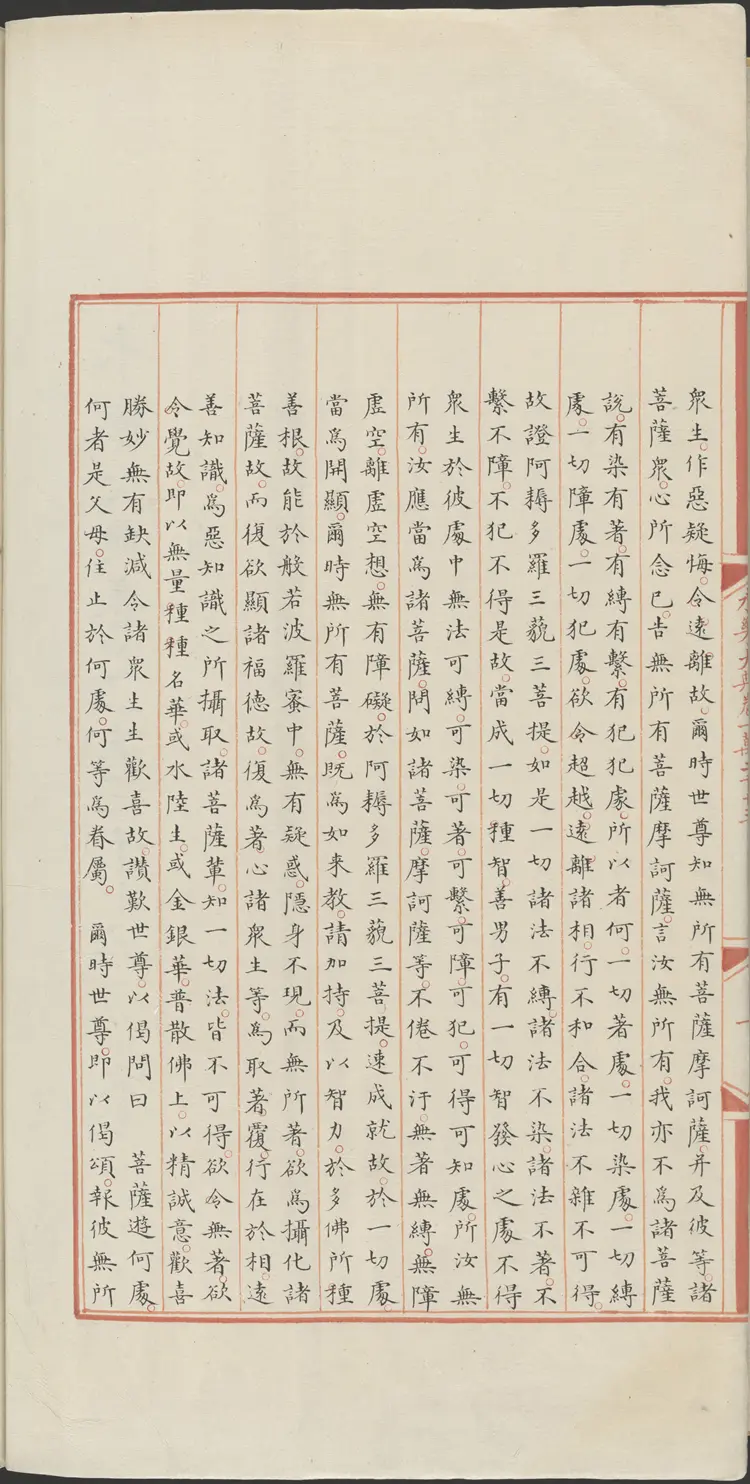 眾生。作惡疑悔。令遠離故。爾時世尊知無所有菩薩摩訶薩。并及彼等。諸
菩薩眾。心所念已。告無所有菩薩摩訶薩。言汝無所有。我亦不為諸菩薩
說。有染有著。有縛有繫。有犯犯處。所以者何。一切著處。一切染處。一切縛
處。一切障處。一切犯處。欲令超越。遠離諸相。行不和合。諸法不雜不可得。
故證阿耨多羅三藐三菩提。如是一切諸法不縛。諸法不染。諸法不著。不
繫不障。不犯不得是故。當成一切種智。善男子。有一切智發心之處不得
眾生於彼處中無法可縛。可染。可著。可繫。可障。可犯。可得可知處。所汝無
所有。汝應當為諸菩薩。問如諸菩薩。摩訶薩等。不倦不汙。無著無縛。無障
虛空。離虛空想。無有障礙。於阿耨多羅三藐三菩提。速成就故。於一切處
當為開顯。爾時無所有菩薩。既為如來教。請加持。及以智力。於多佛所種
善根。故能於般若波羅蜜中。無有疑惑。隱身不現。而無所著。欲為攝化諸
菩薩故。而復欲顯諸福德故。復為著。心諸眾生等。為取著。覆。行在於相。遠
善知識。為惡知識之所攝取。諸菩薩輩。知一切法。皆不可得。欲令無著。欲
令覺故。即以無量種種名華。或水陸生。或金銀華。普散佛上。以精誠意。歡喜
勝妙無有缺減令諸眾生生歡喜故。讚歎世尊。以偈問曰　菩薩遊何處。
何者是父母。住止於何處。何等為眷屬。　爾時世尊。即以偈頌。報彼無所